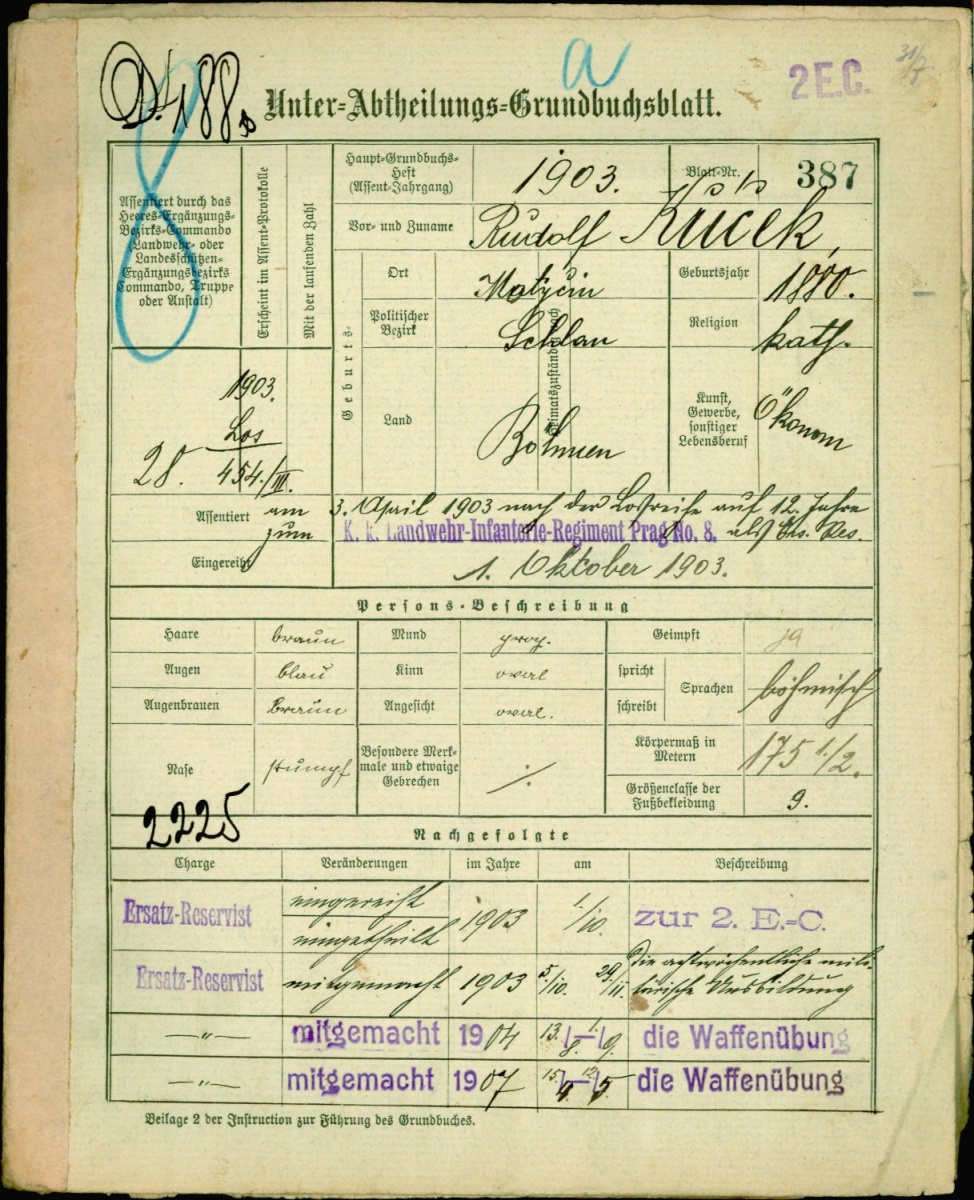 a
2 E.C.
31/7
188
Unter-Abtheilungs-Grundbuchsblatt.
Assentiert durch das
Heeres-Ergänzungs-
Bezirks-Commando
(Landwehr- oder
Landesschützen-
Ergänzungsbezirks
Commando, Truppe
oder Anstalt)
Erscheint im Assent-Protokolle
Mit der laufenden Zahl
Haupt-Grundbuchs-
Heft
(Assent-Jahrgang)
1903.
Blatt-Nr.
387
Vor- und Zuname
Rudolf Kuček,
Geburts-
Ort
Politischer
Bezirk
Schlan
Land
Böhmen
Heimatszuständig nach
Geburtsjahr
1880.
Religion
kath.
Kunst,
Gewerbe,
sonstiger
Lebensberuf
Ökonom
1903.
Los
28. 454./III.
Assentiert am 3. April 1903 nach der Losreihe auf 12 Jahre
zum K. k. Landwehr-Infanterie-Regiment Prag No. 8. als Ers. Res.
Eingereiht 1. Oktober 1903.
Persons-Beschreibung
Haare braun
Augen blau
Augenbrauen braun
Nase stumpf
Mund prop.
Kinn oval
Angesicht oval.
Besondere Merk-
male und etwaige
Gebrechen
./.
Geimpft ja
spricht
schreibt
Sprachen
böhmisch
Körpermaß in
Metern
175 1/2.
Größenclasse der
Fußbekleidung
9.
2225
Nachgefolgte
Charge Veränderungen im Jahre am Beschreibung
Ersatz-Reservist eingereiht
eingetheilt 1903 1./10. zur 2. E.-C.
Ersatz-Reservist mitgemacht 1903 5./10. 29/11. die achtwöchentliche mili-
tärische Ausbildung
—"— mitgemacht 1904 13./8.—1./9. die Waffenübung
—"— mitgemacht 1907 15./4.—12./5. die Waffenübung
Beilage 2 der Instruction zur Führung des Grundbuches.